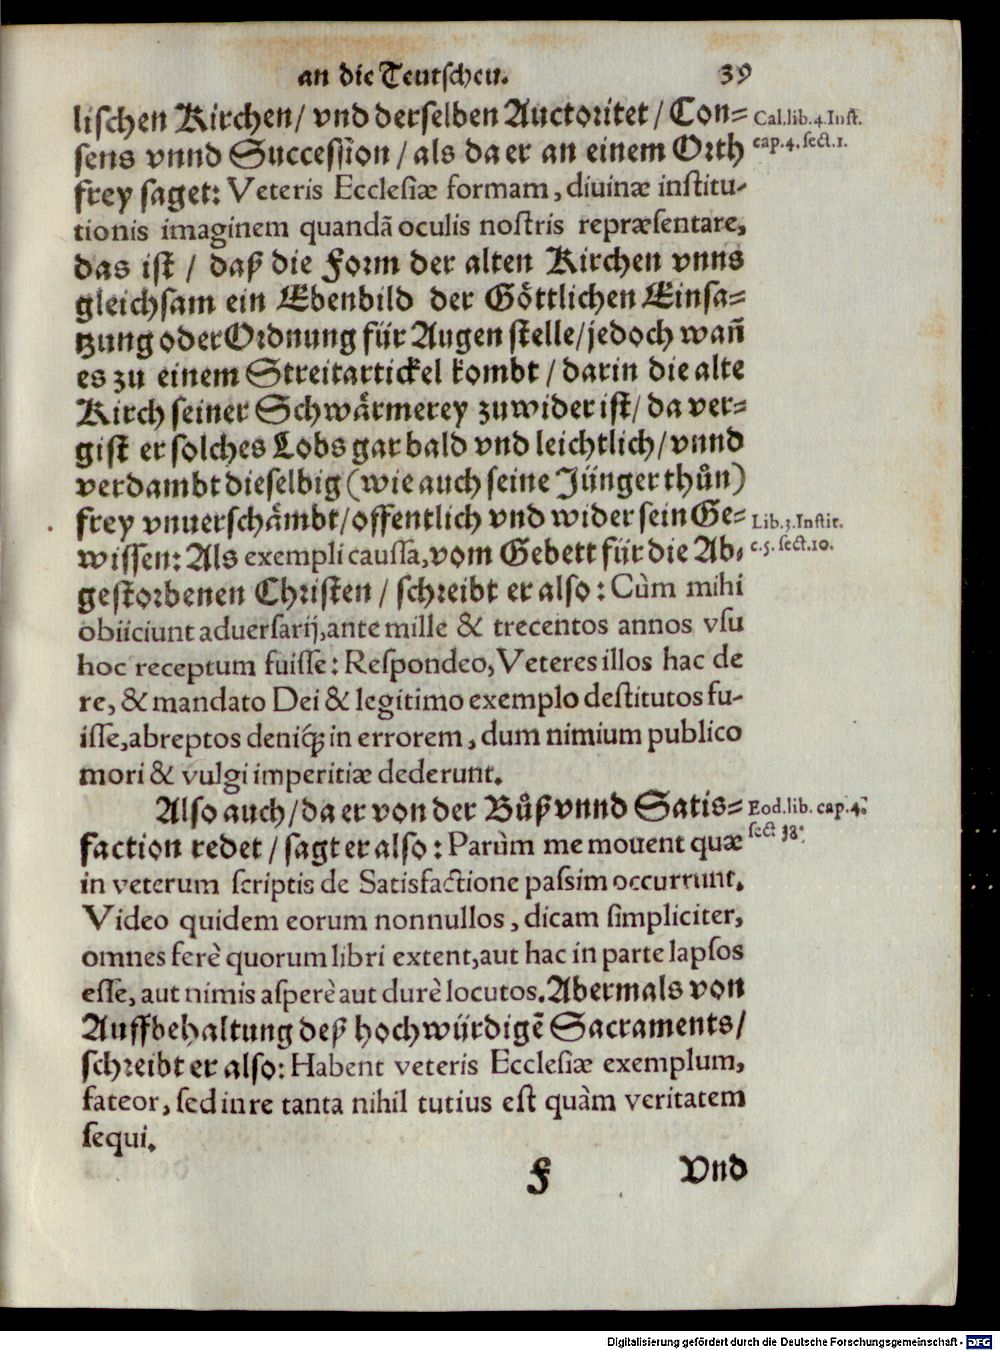 an die Teutschen. 39
lischen Kirchen/ vnd derselben Auctoritet/ Con=
sens vnnd Succession/ als da er an einem Orth
frey saget: Veteris Ecclesiæ formam, diuinæ institu-
tionis imaginem quandā oculis nostris repræsentare,
das ist/ daß die Form der alten Kirchen vnns
gleichsam ein Ebenbild der Göttlichen Einsa=
tzung oder Ordnung für Augen stelle/ jedoch wañ
es zu einem Streitartickel kombt/ darin die alte
Kirch seiner Schwärmerey zuwider ist/ da ver=
gist er solches Lobs gar bald vnd leichtlich/ vnnd
verdambt dieselbig (wie auch seine Jünger thůn)
frey vnuerschämbt/ offentlich vnd wider sein Ge=
wissen: Als exempli caussa, vom Gebett für die Ab=
gestorbenen Christen/ schreibt er also: Cùm mihi
obiiciunt aduersarij, ante mille & trecentos annos vsu
hoc receptum fuisse: Respondeo, Veteres illos hac de
re, & mandato Dei & legitimo exemplo destitutos fu-
isse, abreptos deniq; in errorem, dum nimium publico
mori & vulgi imperitiæ dederunt.
Also auch/ da er von der Bůß vnnd Satis=
faction redet/ sagt er also: Parùm me mouent quæ
in veterum scriptis de Satisfactione passim occurrunt.
Video quidem eorum nonnullos, dicam simpliciter,
omnes ferè quorum libri extent, aut hac in parte lapsos
esse, aut nimis asperè aut durè locutos. Abermals von
Auffbehaltung deß hochwürdigē Sacraments/
schreibt er also: Habent veteris Ecclesiæ exemplum,
fateor, sed in re tanta nihil tutius est quàm veritatem
sequi.
F Vnd
Cal. lib. 4. Inst.
cap. 4. sect. 1.
Lib. 3. Instit.
c. 5. sect. 10.
Eod. lib. cap. 4.
sect 38.
Digitalisierung gefördert durch die Deutsche Forschungsgemeinschaft - DFG